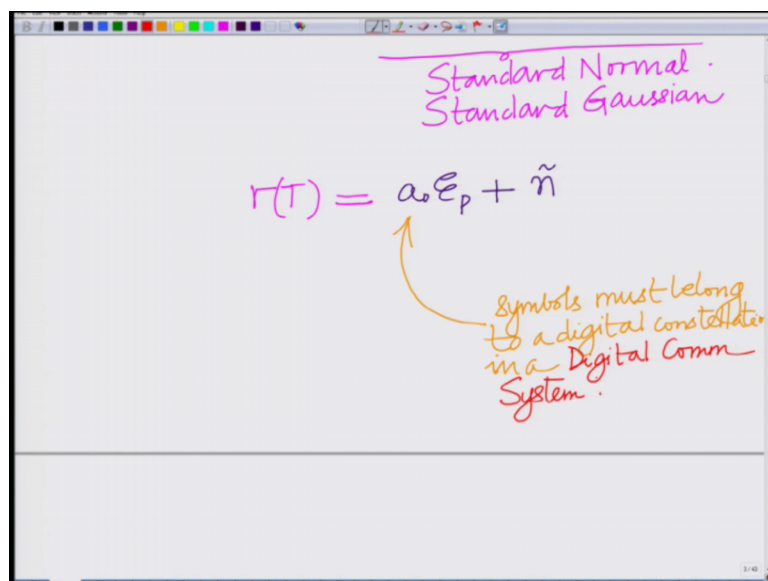 Standard Normal.
Standard Gaussian
r(T) = a₀ℰₚ + ñ
symbols must belong
to a digital constellatio
in a Digital Comm
System.
3/40